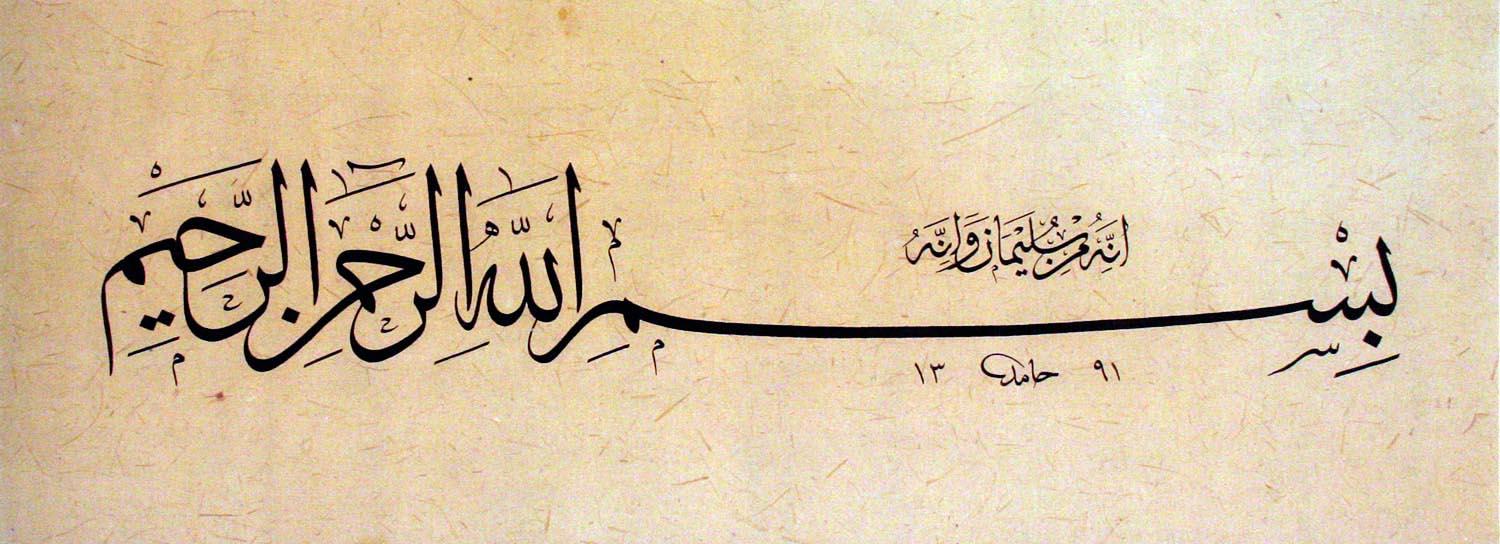 انه من سليمان وانه
بسم الله الرحمن الرحيم
٩١ حامد ١٣